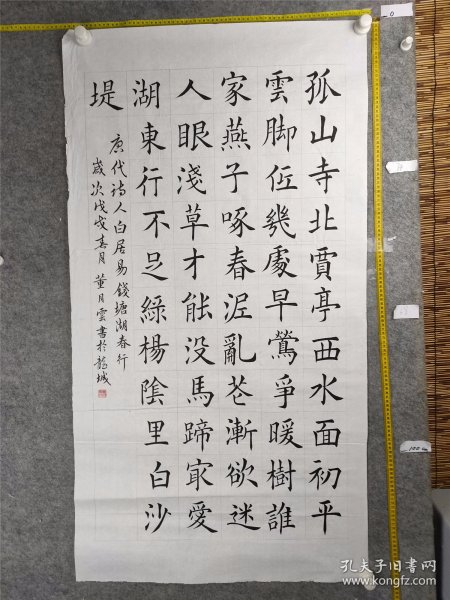 孤山寺北賈亭西水面初平
雲脚低幾處早鶯爭暖樹誰
家燕子啄春泥亂花漸欲迷
人眼淺草才能没馬蹄最愛
湖東行不足綠楊陰里白沙
堤
唐代诗人白居易錢塘湖春行
歲次戊戌月 董月雲書於龍城
0
100cm
孔夫子旧书网
www.kongfz.com